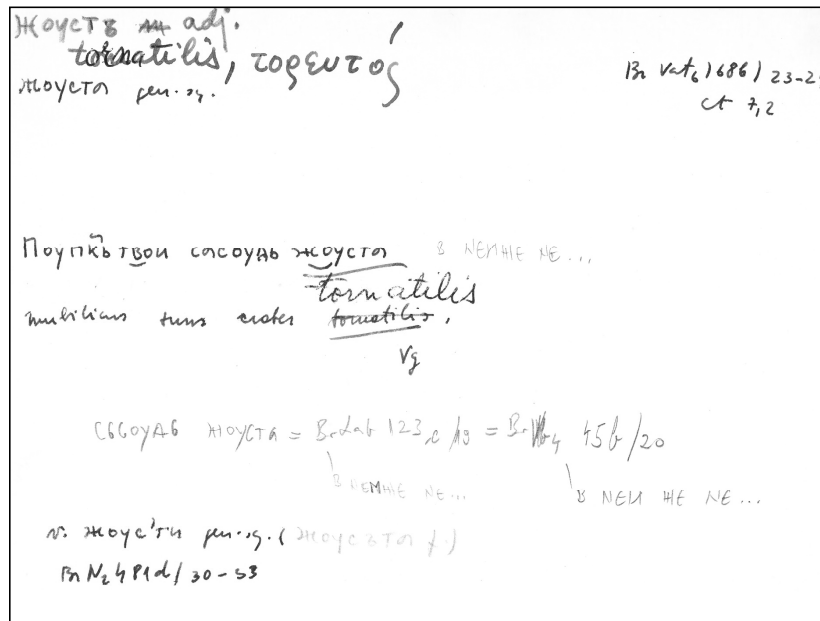 жоустъ adj.
tornatilis, τορευτός
жоуста gen. sg.
Br Vat₆ 168b/23-2
Ct 7,2
Поупкъ твои сасоудь жоуста в NEИЖЕ NE...
tornatilis
umbilicus tuus crater tornatilis,
Vg
жоуста = BrLab 123c/19 = Br 45b/20
в NEИЖЕ NE...
в NEИ ЖЕ NE...
v. жоус'ти gen. sg. (жоусъта f.)
Br N₂ 481d/30-33